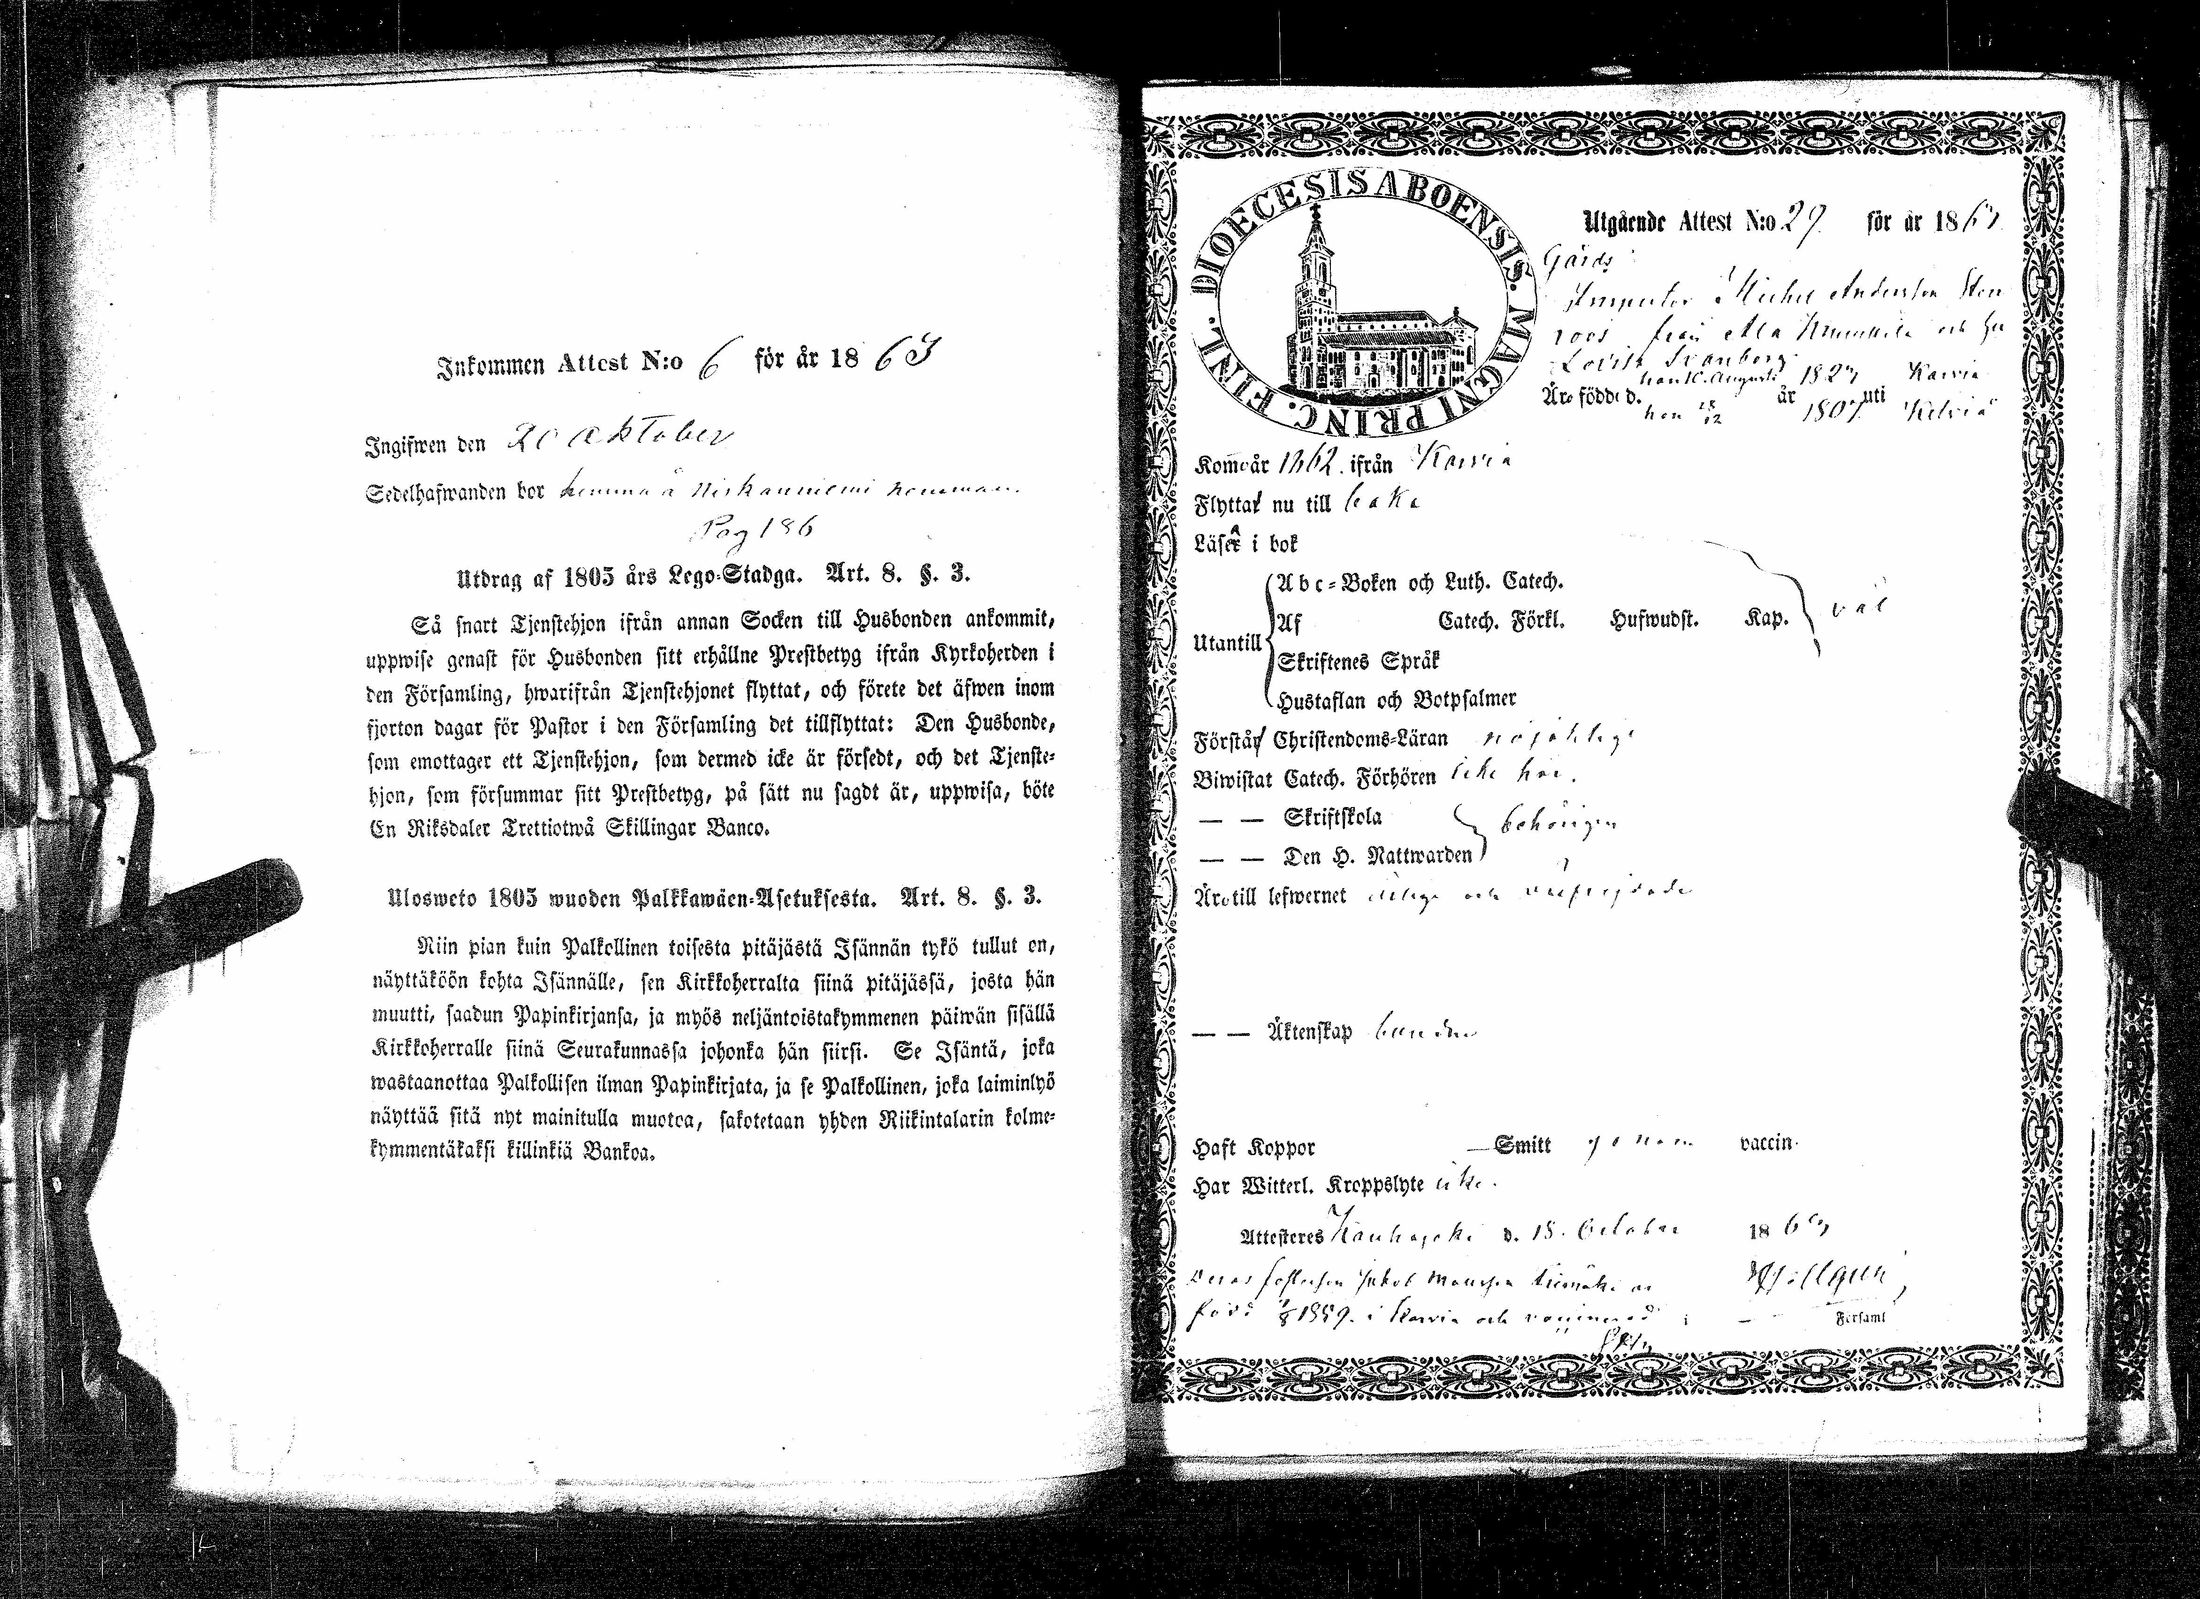 Inkommen Attest N:o 6 för år 1863
Ingifwen den 20 Oktober
Sedelhafwanden bor hemma å Niskaniemi hemman.
Pag 186
Utdrag af 1805 års Lego-Stadga. Art. 8. §. 3.
Så snart Tjenstehjon ifrån annan Socken till Husbonden ankommit,
uppwise genast för Husbonden sitt erhållne Prestbetyg ifrån Kyrkoherden i
den Församling, hwarifrån Tjenstehjonet flyttat, och förete det äfwen inom
fjorton dagar för Pastor i den Församling det tillflyttat: Den Husbonde,
som emottager ett Tjenstehjon, som dermed icke är försedt, och det Tjenste-
hjon, som försummar sitt Prestbetyg, på sätt nu sagdt är, uppwisa, böte
En Riksdaler Trettiotwå Skillingar Banco.
Ulosweto 1805 wuoden Palkkawäen-Asetuksesta. Art. 8. §. 3.
Niin pian kuin Palkollinen toisesta pitäjästä Isännän tykö tullut on,
näyttäköön kohta Isännälle, sen Kirkkoherralta siinä pitäjässä, josta hän
muutti, saadun Papinkirjansa, ja myös neljäntoistakymmenen päiwän sisällä
Kirkkoherralle siinä Seurakunnassa johonka hän siirsi. Se Isäntä, joka
wastaanottaa Palkollisen ilman Papinkirjata, ja se Palkollinen, joka laiminlyö
näyttää sitä nyt mainitulla muotoa, sakotetaan yhden Riikintalarin kolme-
kymmentäkaksi killinkiä Bankoa.
DIOECESIS ABOENSIS. MAGNI PRINC. FINL.
Utgående Attest N:o 29 för år 1863
Gårds
Inspector Michel Andersson Sten
roos från Ala och
Lovisa Svanberg
Äro födde d. han 10. Augusti år 1823 uti Karvia
hon 28/12 1807 Kelviå
Kommo år 1862. ifrån Karvia
Flytta nu till
Läsa i bok
Utantill
Abc-Boken och Luth. Catech.
Af Catech. Förkl. Hufwudst. Kap. väl
Skriftenes Språk
Hustaflan och Botpsalmer
Förstå Christendoms-Läran nöjaktigt
Biwistat Catech. Förhören icke här.
— — Skriftskola behörigen
— — Den H. Nattwarden
Äro till lefwernet ärlige och välfrejdade
— — Äktenskap bundne
Haft Koppor — Smitt genom vaccin.
Har Witterl. Kroppslyte icke.
Attesteres Kauhajoki d. 18. October 1863
Deras fosterson Jakob Mattsson är
född 1859. i Karvia och vaccinerad
Forsaml